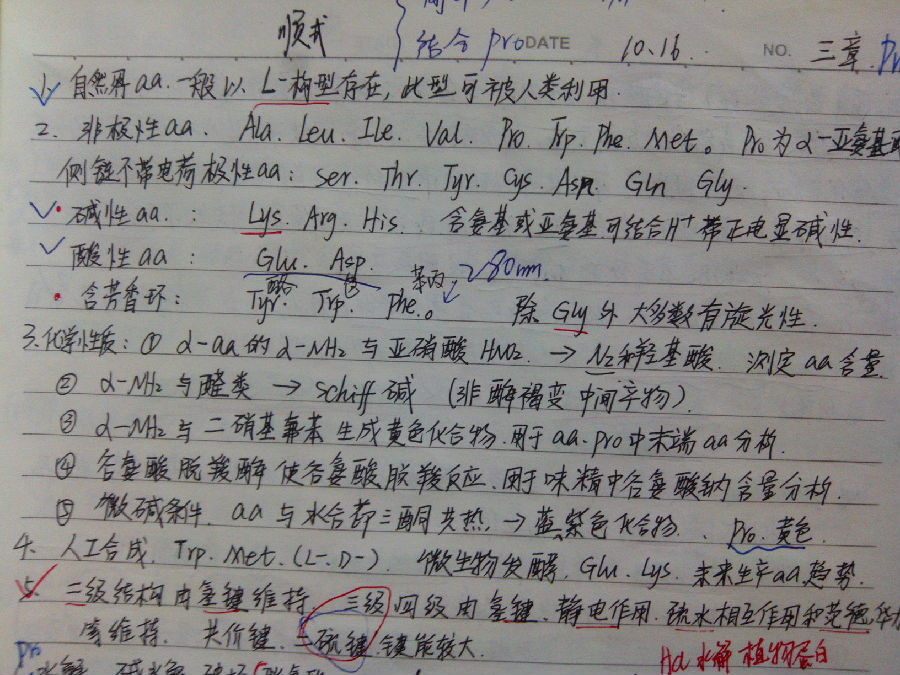 顺式
结合 pro DATE 10.16. NO. 三章. Pr
1. 自然界aa.一般以 L-构型存在,此型可被人类利用.
2. 非极性aa. Ala. Leu. Ile. Val. Pro. Trp. Phe. Met。 Pro为α-亚氨基
侧链不带电荷极性aa: Ser. Thr. Tyr. Cys. Asn. Gln Gly.
碱性aa.: Lys. Arg. His. 含氨基或亚氨基可结合H⁺带正电显碱性.
酸性aa: Glu. Asp.
苯丙 280nm.
含芳香环: Tyr. Trp. Phe。 除Gly外大多数有旋光性.
3.化学性质:① α-aa的α-NH₂与亚硝酸HNO₂. → N₂和羟基酸. 测定aa含量
② α-NH₂与醛类 → schiff碱 (非酶褐变中间产物).
③ α-NH₂与二硝基氟苯生成黄色化合物.用于aa.pro中末端aa分析.
④ 谷氨酸脱羧酶使谷氨酸脱羧反应.用于味精中谷氨酸钠含量分析.
⑤ 微碱条件. aa与水合茚三酮共热, → 蓝紫色化合物. Pro.黄色
4. 人工合成. Trp. Met. (L-. D-). 微生物发酵. Glu. Lys. 未来生产aa趋势.
5. 二级结构由氢键维持. 三级四级由氢键.静电作用.疏水相互作用和范德华
维持. 共价键.二硫键.键能较大.
Pro HCl水解植物蛋白
水解 碱水解